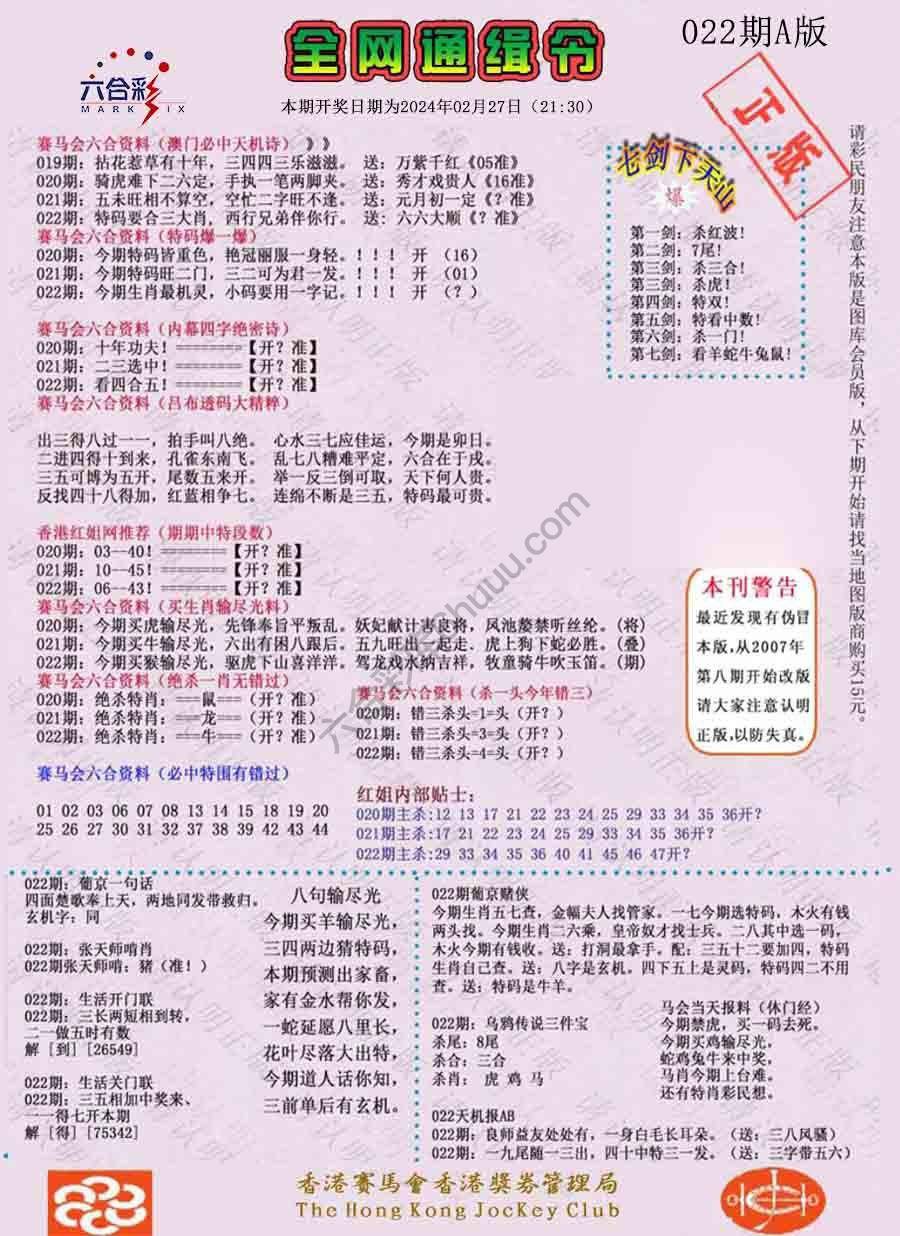 六合彩
MARK SIX
全网通缉令
022期A版
本期开奖日期为2024年02月27日（21:30）
赛马会六合资料（澳门必中天机诗）》》
019期: 拈花惹草有十年，三四四三乐滋滋。 送: 万紫千红《05准》
020期: 骑虎难下二六定，手执一笔两脚夹。 送: 秀才戏贵人《16准》
021期: 五未旺相不算空，空忙二字旺不逢。 送: 元月初一定《？准》
022期: 特码要合三大肖，西行兄弟伴你行。 送: 六六大顺《？准》
赛马会六合资料（特码爆一爆）
020期: 今期特码皆重色，艳冠丽服一身轻。！！！ 开 （16）
021期: 今期特码旺二门，三二可为君一发。！！！ 开 （01）
022期: 今期生肖最机灵，小码要用一字记。！！！ 开 （？）
赛马会六合资料（内幕四字绝密诗）
020期: 十年功夫！========【开？准】
021期: 二三选中！========【开？准】
022期: 看四合五！========【开？准】
赛马会六合资料（吕布透码大精粹）
出三得八过一一，拍手叫八绝。 心水三七应佳运，今期是卯日。
二进四得十到来，孔雀东南飞。 乱七八糟难平定，六合在于戌。
三五可博为五开，尾数五来开。 举一反三倒可取，天下何人贵。
反找四十八得加，红蓝相争七。 连绵不断是三五，特码最可贵。
七剑下天山
爆
第一剑: 杀红波！
第二剑: 7尾！
第三剑: 杀三合！
第三剑: 杀虎！
第四剑: 特双！
第五剑: 特看中数！
第六剑: 杀一门！
第七剑: 看羊蛇牛兔鼠！
正版
请彩民朋友注意本版是图库会员版，从下期开始请找当地图版商购买15元。
香港红姐网推荐（期期中特段数）
020期: 03--40！========【开？准】
021期: 10--45！========【开？准】
022期: 06--43！========【开？准】
赛马会六合资料（买生肖输尽光料）
020期: 今期买虎输尽光，先锋奉旨平叛乱。妖妃献计害良将，风池嫠禁听丝纶。（将）
021期: 今期买牛输尽光，六出有困八跟后。五九旺出一起走．虎上狗下蛇必胜。（叠）
022期: 今期买猴输尽光，驱虎下山喜洋洋。驾龙戏水纳吉祥，牧童骑牛吹玉笛。（期）
赛马会六合资料（绝杀一肖无错过）
020期: 绝杀特肖: ===鼠===（开？准）
021期: 绝杀特肖: ===龙===（开？准）
022期: 绝杀特肖: ===牛===（开？准）
赛马会六合资料（杀一头今年错三）
020期: 错三杀头=1=头（开？）
021期: 错三杀头=3=头（开？）
022期: 错三杀头=4=头（开？）
本刊警告
最近发现有伪冒
本版,从2007年
第八期开始改版
请大家注意认明
正版,以防失真。
赛马会六合资料（必中特围有错过）
01 02 03 06 07 08 13 14 15 18 19 20
25 26 27 30 31 32 37 38 39 42 43 44
红姐内部贴士:
020期主杀:12 13 17 21 22 23 24 25 29 33 34 35 36开？
021期主杀:17 21 22 23 24 25 29 33 34 35 36开？
022期主杀:29 33 34 35 36 40 41 45 46 47开？
022期: 葡京一句话
四面楚歌奉上天，两地同发带救归。
玄机字: 同
022期: 张天师啃肖
022期张天师啃: 猪（准！）
022期: 生活开门联
022期: 三长两短相到转，
二一做五时有数
解 [到] [26549]
022期: 生活关门联
022期: 三五相加中奖来、
一一得七开本期
解 [得] [75342]
八句输尽光
今期买羊输尽光，
三四两边猜特码，
本期预测出家畜，
家有金水帮你发，
一蛇延愿八里长，
花叶尽落大出特，
今期道人话你知，
三前单后有玄机。
022期葡京赌侠
今期生肖五七查，金幅夫人找管家。一七今期选特码，木火有钱
两头找。今期生肖二六乘，皇帝奴才找士兵。二八其中选一码，
木火今期有钱收。送: 打洞最拿手。配: 三五十二要加四，特码
生肖自己查。送: 八字是玄机。四下五上是灵码，特码四二不用
查。送: 特码是牛羊。
022期: 乌鸦传说三件宝
杀尾: 8尾
杀合: 三合
杀肖: 虎 鸡 马
马会当天报料（休门经）
今期禁虎，买一码去死。
今期买鸡输尽光，
蛇鸡兔牛来中奖，
马肖今期上台难。
还有特肖彩民想。
022天机报AB
022期: 良师益友处处有，一身白毛长耳朵。（送: 三八风骚）
022期: 一九尾随一三出，四十中特三一发。（送: 三字带五六）
香港賽馬會香港獎券管理局
The Hong Kong JocKey Club